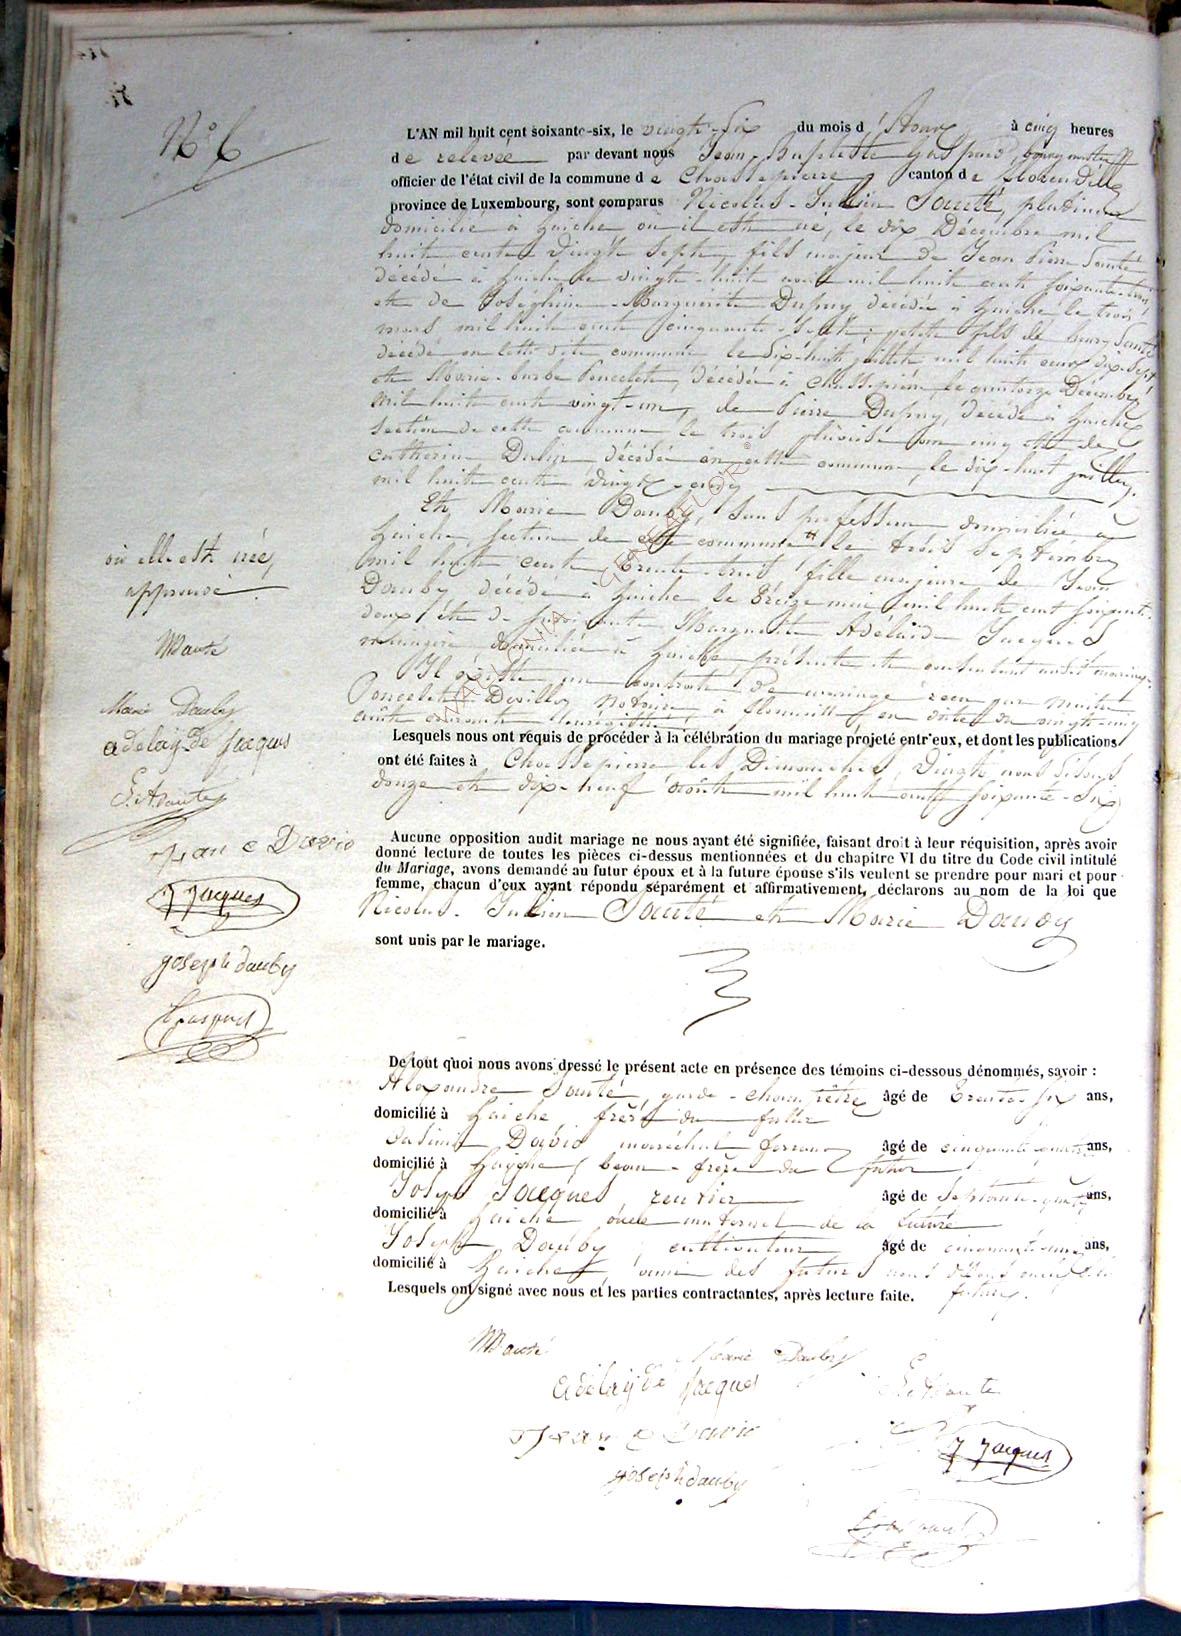 N° 6
L'AN mil huit cent soixante-six, le vingt-six du mois d'Aout à cinq heures
de relevée par devant nous Jean-Baptiste Gaspard, bourgmestre
officier de l'état civil de la commune de Chassepierre canton de Florenville
province de Luxembourg, sont comparus Nicolas-Julien Santé,
domicilié à Laiche où il est né, le dix Décembre mil
huit cent vingt sept, fils majeur de Jean Pierre Santé
décédé à Laiche le vingt-huit mil huit cent soixante-trois
et de Joséphine-Marguerite Dupuy décédée à Laiche le trois
mars mil huit cent cinquante-sept; petit fils de Henry Santé
décédé en cette dite commune le dix-huit juillet mil huit cent dix-sept
et Marie-barbe Poncelet, décédée à Chassepierre le quatorze Décembre
mil huit cent vingt-un, de Pierre Dupuy, décédé à Laiche
section de cette commune le trois pluviose an cinq et de
Catherine décédée en cette commune, le dix-huit juillet
mil huit cent vingt-cinq
Et Marie Dauby, sans profession domiciliée à
Laiche, section de cette commune # le trois Septembre
mil huit cent trente-trois fille majeure de Jean
Dauby décédé à Laiche le treize mai mil huit cent soixante-
deux et de Marguerite Adélaïde Jacques
ménagère domiciliée à Laiche, présente et consentant audit mariage.
Il existe un contrat de mariage reçu par maître
Poncelet Devillez Notaire à Florenville, en date du vingt-cinq
août courant
où elle est née,
approuvé
NSanté
Marie Dauby
adelayde Jacques
E. A Santé
Jean C David
J Jacques
joseph dauby
Gaspard
Lesquels nous ont requis de procéder à la célébration du mariage projeté entr'eux, et dont les publications
ont été faites à Chassepierre les Dimanches,
douze et dix-neuf août mil huit cent soixante-six
Aucune opposition audit mariage ne nous ayant été signifiée, faisant droit à leur réquisition, après avoir
donné lecture de toutes les pièces ci-dessus mentionnées et du chapitre VI du titre du Code civil intitulé
du Mariage, avons demandé au futur époux et à la future épouse s'ils veulent se prendre pour mari et pour
femme, chacun d'eux ayant répondu séparément et affirmativement, déclarons au nom de la loi que
Nicolas-Julien Santé et Marie Dauby
sont unis par le mariage.
De tout quoi nous avons dressé le présent acte en présence des témoins ci-dessous dénommés, savoir :
Alexandre Santé, garde-champêtre âgé de trente-six ans,
domicilié à Laiche, frère du futur
David maréchal ferrant âgé de cinquante quatre ans,
domicilié à Laiche, beau-frère du futur
Joseph Jacques rentier âgé de septante-quatre ans,
domicilié à Laiche oncle maternel de la future
Joseph Dauby, cultivateur âgé de ans,
domicilié à Laiche ami des futurs
Lesquels ont signé avec nous et les parties contractantes, après lecture faite. future.
NSanté
Marie Dauby
adelayde Jacques
E. A Santé
Jean C David
J Jacques
joseph dauby
Gaspard
WALLONIA GENEALOR ©